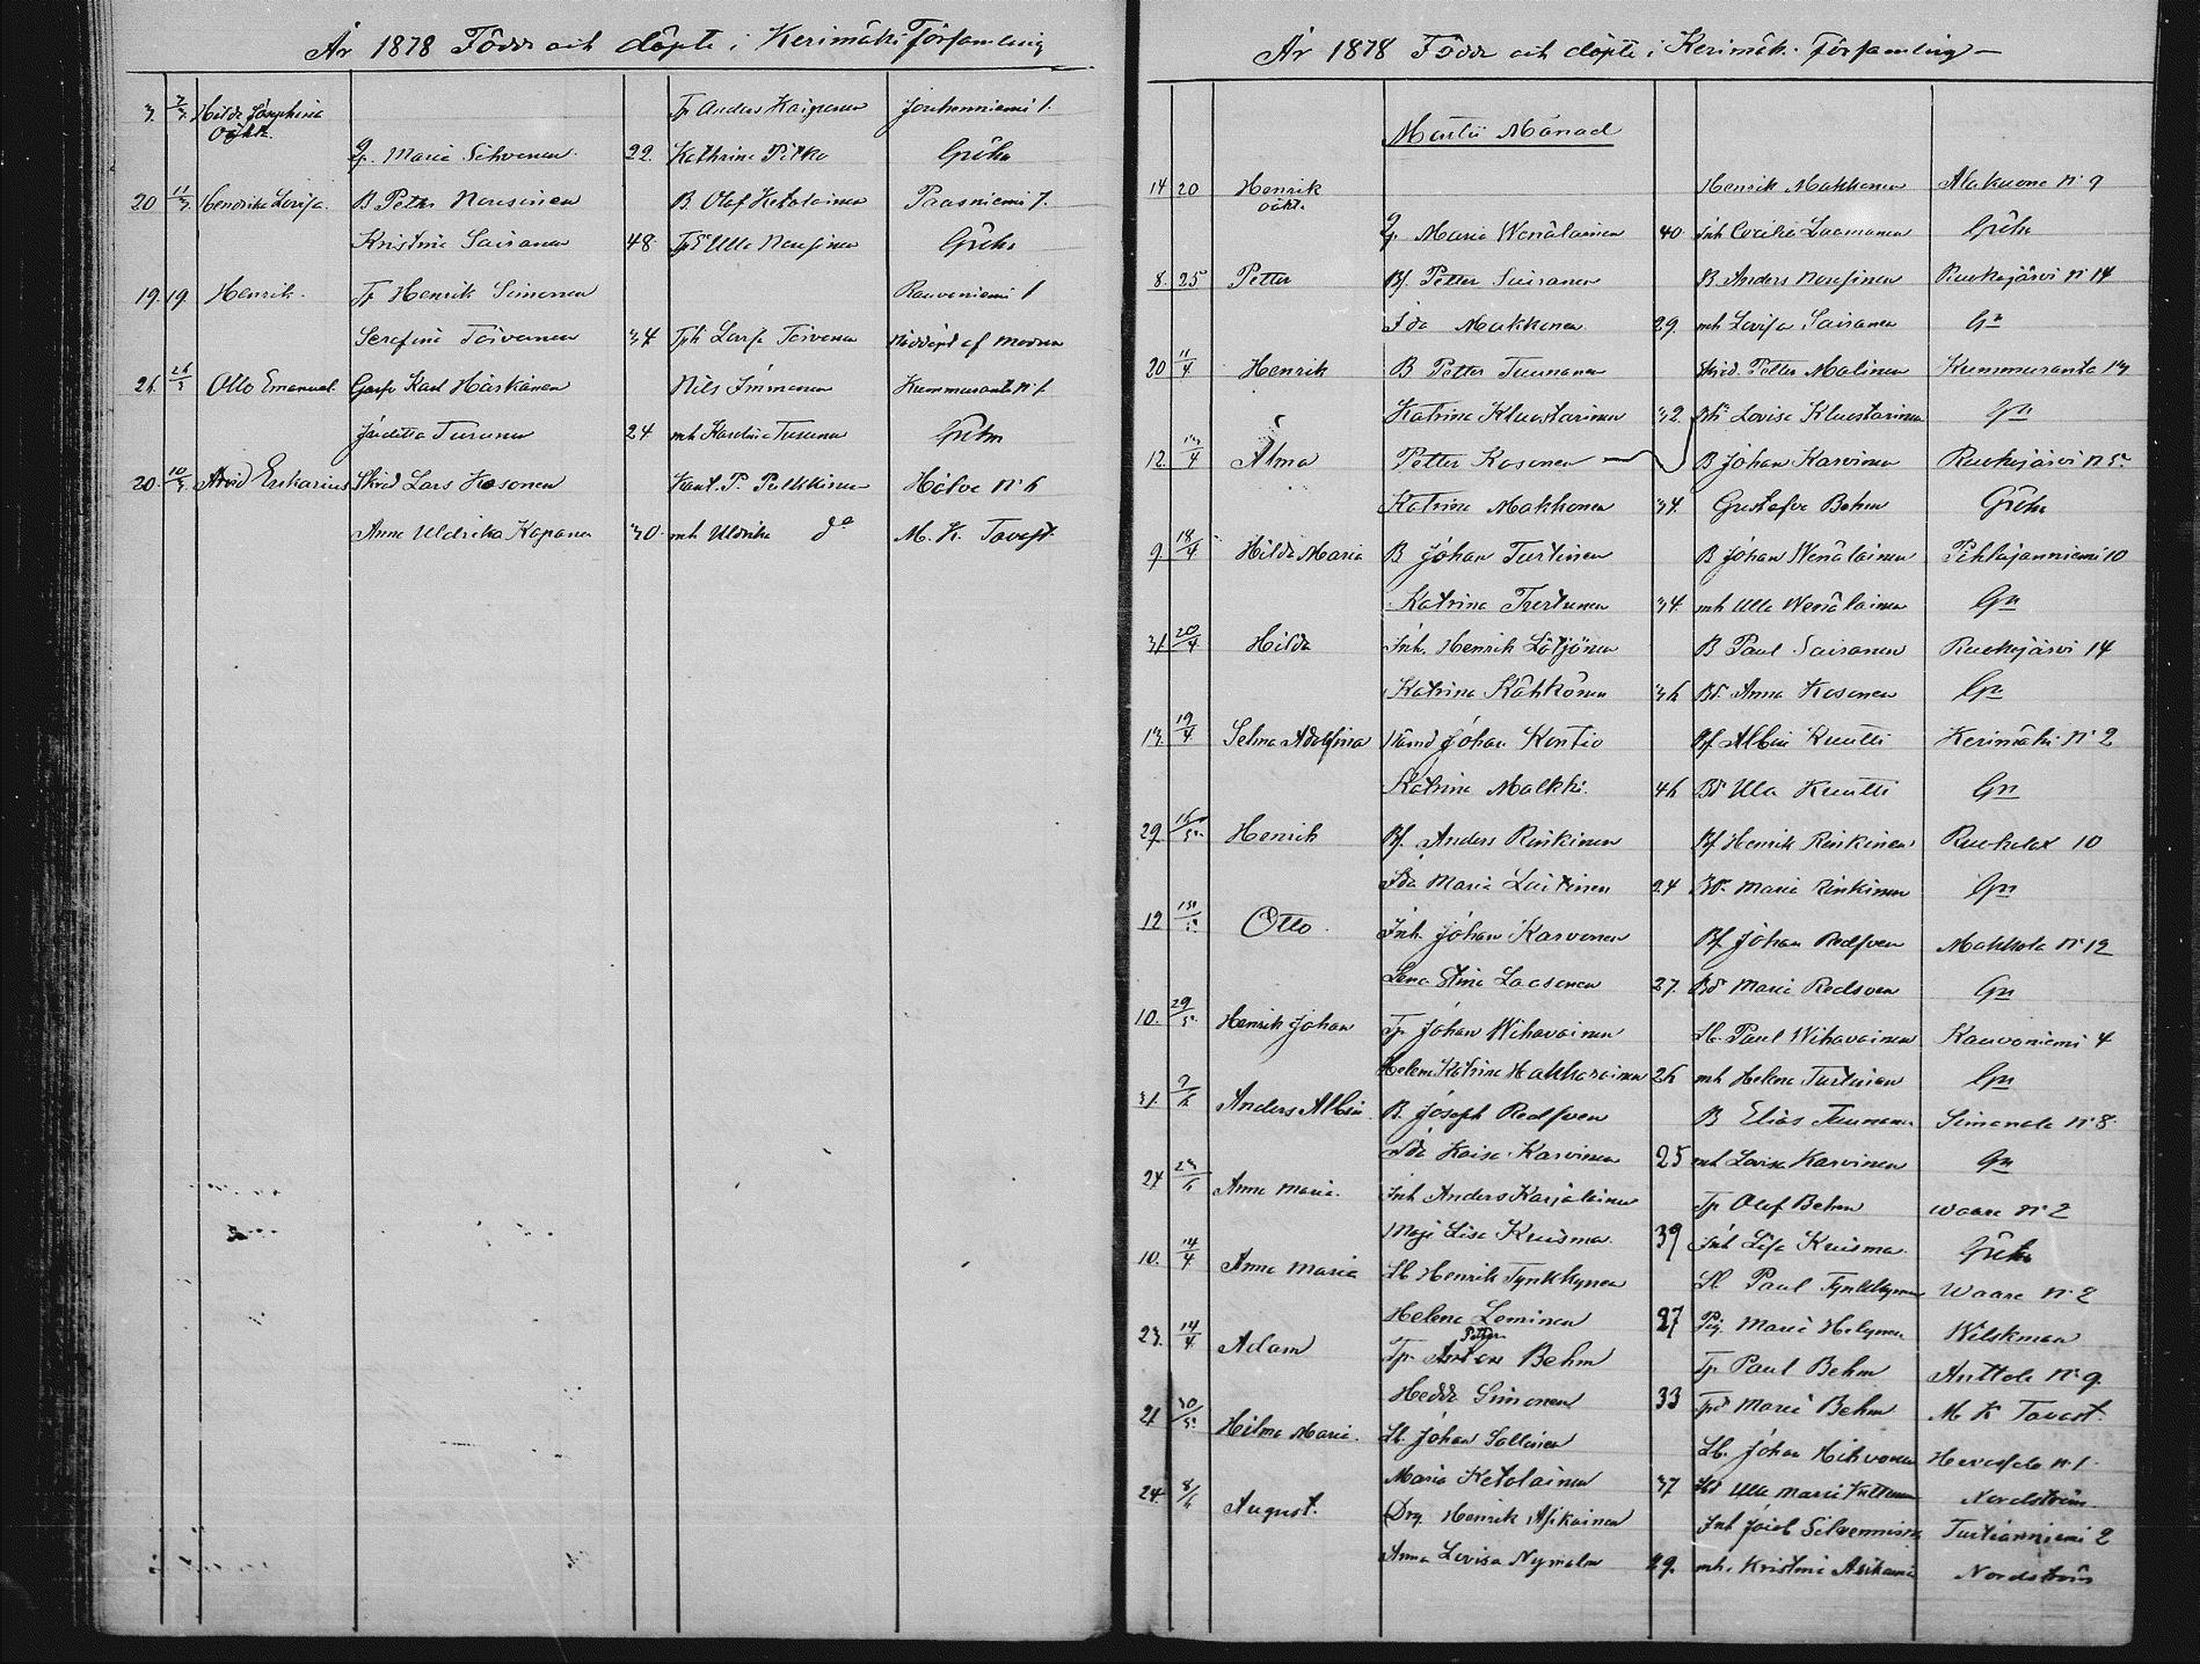 År 1878 Födde och döpte i Kerimäki Församling
3. 3/3. Hilda Josephina Tp Anders Kaipanen Jouhenniemi 1.
oäkta.
Qp. Maria Sihvonen 22. Kathrina Pitko Gröhn
20 11/3. Hendrika Lovisa. B Petter Nousiainen B. Olof Ketolainen Paasniemi 7.
Kristina Sairanen 48. Ulla Nousiainen Gröhn
19. 19. Henrik. Tp Henrik Simonen Rauvoniemi 1
Serefina Toivanen 34 Lovisa Toivonen Nöddöpt af modren
26. 26/3 Otto Emanuel. Karl Häskänen Nils Immonen Kummuranta N 1.
Juditta Turunen 24 mh Karolina Turunen Gröhn
20. 10/3. Arvid Eukarius Skred Lars Kosonen Kant. P. Pulkkinen Hälvä N 6
Anna Uldrika Kapanen 30. mh Uldrika do M. K. Tavast.
År 1878 Födde och döpte i Kerimäki Församling
Martii Månad
14 20 Henrik Henrik Makkonen Alakuona N 9
oäkta
Qp. Maria Wenäläinen 40 Inh Cecilia Laamanen Gröhn
8. 25 Petter Bf. Petter Sairanen B Anders Nousiainen Ruokojärvi N 14
Ida Makkonen 29. mh Lovisa Sairanen Gn
20 11/4 Henrik B Petter Tuunanen Skrd. Petter Malinen Kummuranta 13
Katrina Kluustarinen 32. Lovisa Kluustarinen Gn
12. 13/4 Alma Petter Kosonen B Johan Karvinen Ruokojärvi N 5.
Katrina Makkonen 34. Gustafva Behm Gröhn
9 18/4 Hilda Maria B Johan Turtinen B Johan Wenäläinen Pihlajanniemi 10
Katrina Turtunen 34. mh Ulla Wenäläinen Gn
31 20/4 Hilda Inh. Henrik Lötjönen B Paul Sairanen Ruokojärvi 14
Katrina Kähkönen 36 Bd. Anna Kosonen Gn
13. 19/4 Selma Adolfina Nämd Johan Kontio Bf Albin Kuutti Kerimäki N 2
Katrina Malkki. 46 Bd Ulla Kuutti Gn
29. 16/5. Henrik Bf. Anders Rinkinen Bf Henrik Rinkinen Ruokolax 10
Ida Maria Laitinen 24 Bd. Maria Rinkinen Gn
12 Otto. Inh. Johan Karvonen Bf Johan Redsven Makkola N 12
Lena Stina Laasonen 27. Bd Maria Redsven Gn
10. 29/5. Henrik Johan Tp Johan Wihavainen Lb. Paul Wihavainen Rauvoniemi 4
Helena Katrina Hakkarainen 26 mh Helena Turtiainen Gn
31 9/6 Anders Albin B. Joseph Redsven B Elias Tuunanen Simanala N 8.
Ida Kaisa Karvinen 25 mh Lovisa Karvinen Gn
24 23/6 Anna Maria. Inh Anders Karjalainen Tp Olof Behm Waara N 2
Maja Lisa Kruisma 39 Inh Lisa Kuisma Gröhn
10. 14/4 Anna Maria Lb Henrik Tynkkynen Lb. Paul Tynkkynen Waara N 2
Helena Leminen 27 Pig. Maria Wilskman
23. 14/4. Adam Tp. Anton Petter Behm Tp Paul Behm Anttola N 9.
Hedda Simonen 33 Maria Behm M K Tavast.
21 30/5. Hilma Maria. Lb. Johan Sallinen Lb. Johan N 1
Maria Ketolainen 37 Ulla Maria Nordström
24. 8/6 August. Drg. Henrik Asikainen Inh Turtianniemi 2
Anna Lovisa Nymalm 29. mh. Kristina Asikainen Nordström